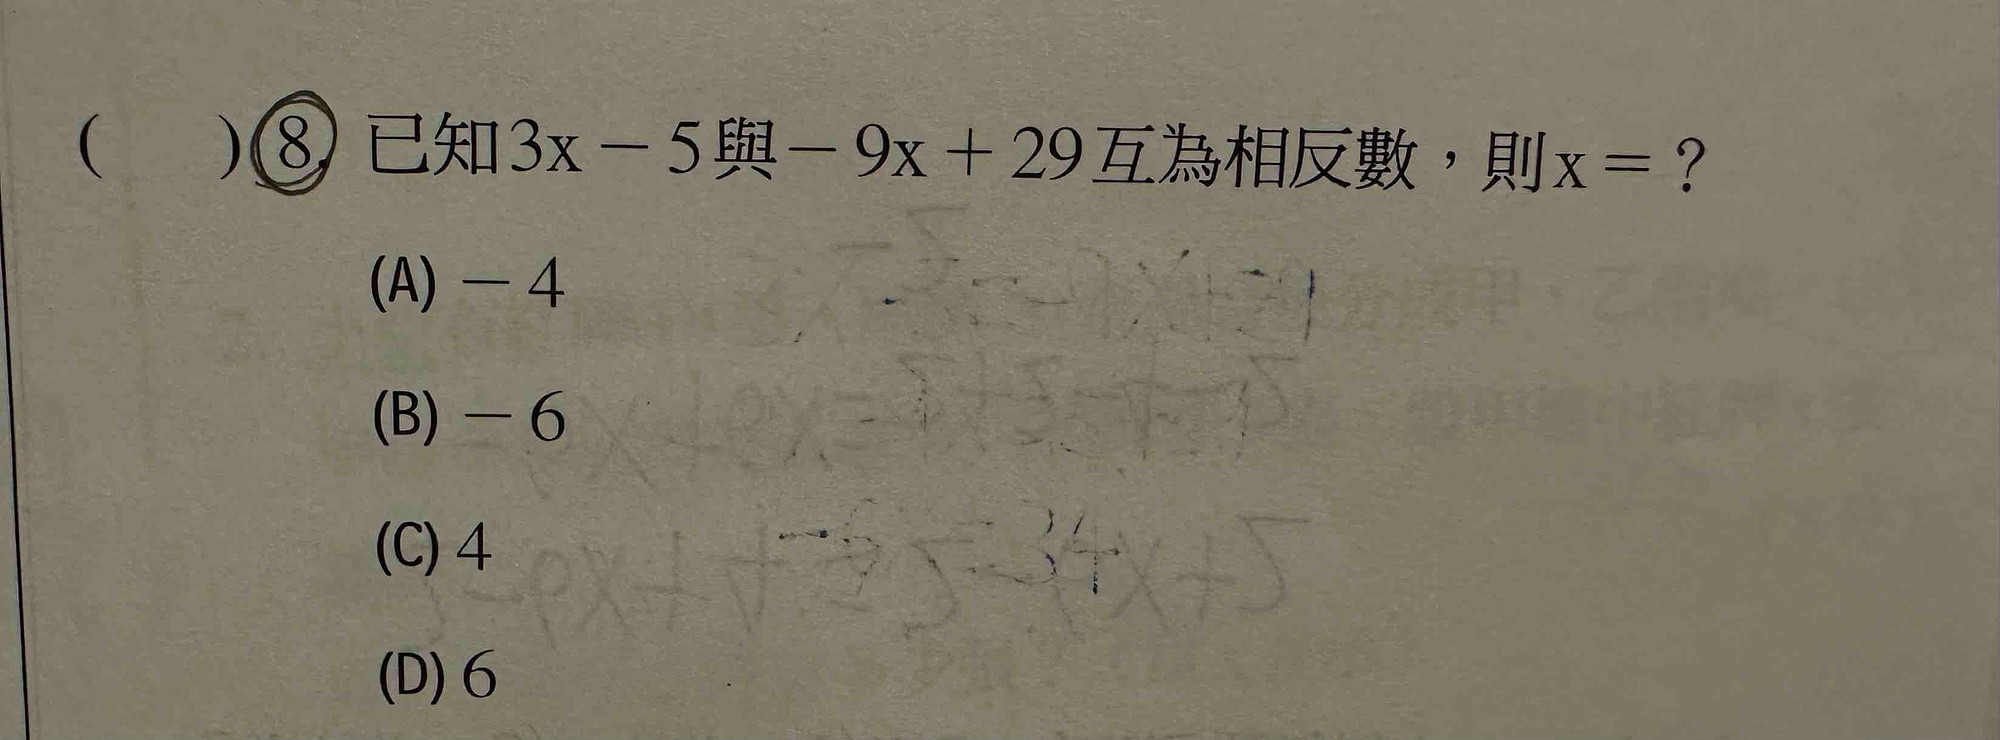 ( ) 8. 已知3x－5與－9x＋29互為相反數，則x＝？
(A)－4
(B)－6
(C) 4
(D) 6